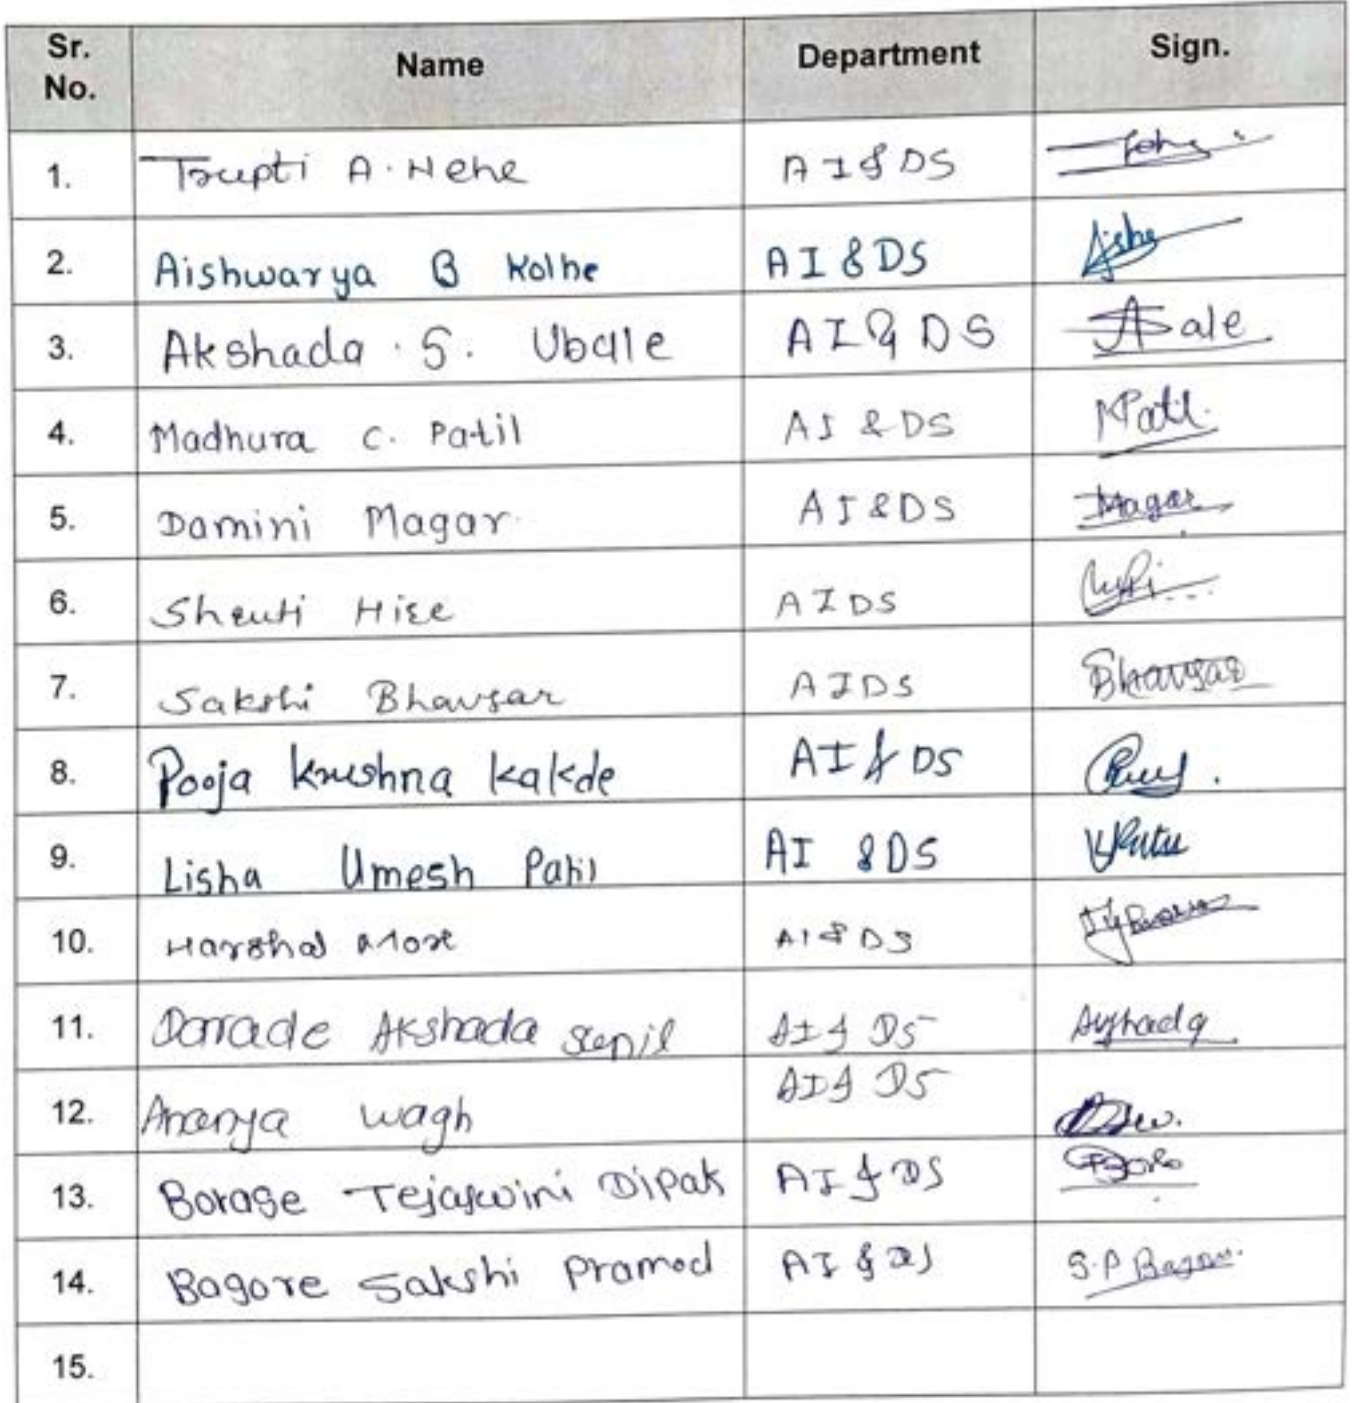 Sr. No. Name Department Sign.
1. Trupti A. Nehe AI & DS
2. Aishwarya B Kolhe AI & DS Aishu
3. Akshada . S. Ubale AI & DS Aale
4. Madhura C. Patil AI & DS MPatil.
5. Damini Magar. AI & DS Magar
6. Shruti Hire AIDS
7. Sakshi Bhavsar AIDS Bhavsar
8. Pooja Krushna Kakde AI & DS
9. Lisha Umesh Patil AI & DS
10. Harshal More AI & DS
11. Darade Akshada Sunil AI & DS
12. Ananya Wagh AI & DS
13. Borase Tejaswini Dipak AI & DS
14. Bagore Sakshi Pramod AI & DS S.P Bagore.
15.